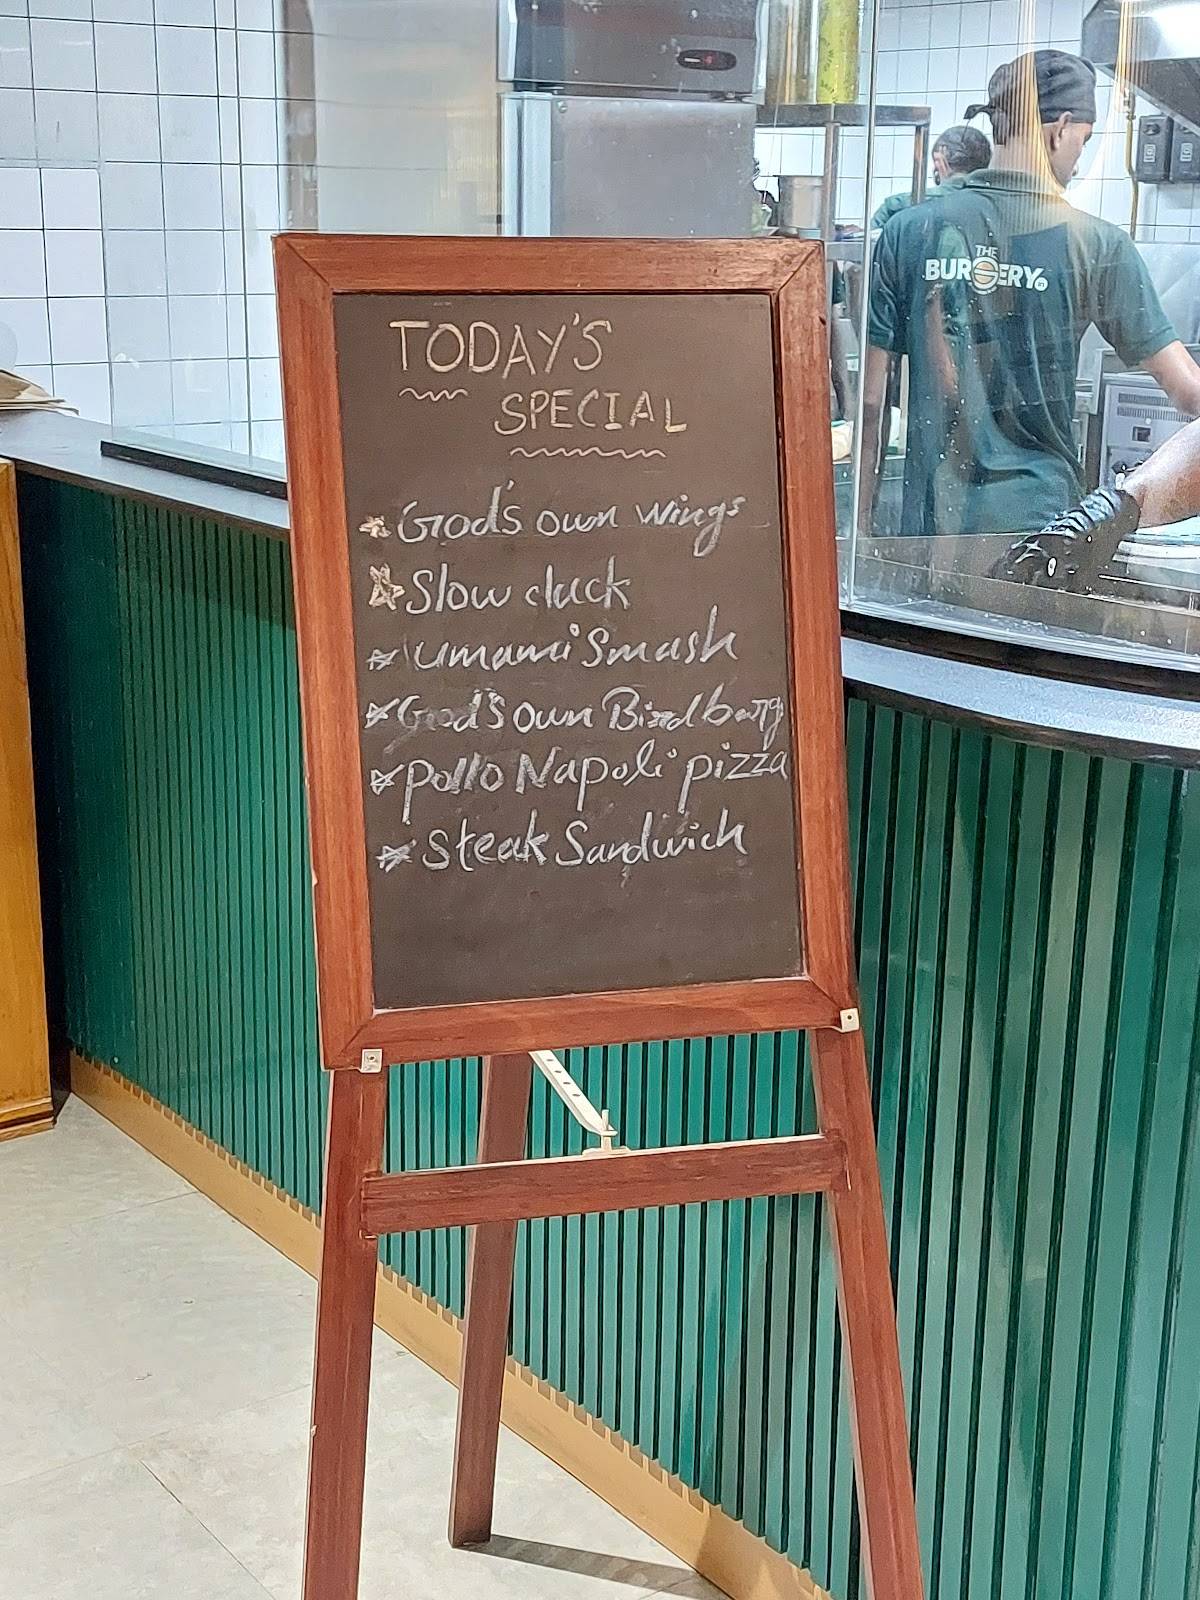 TODAY'S
SPECIAL
God's own wings
Slow cluck
Umami Smash
God's own Bird
Pollo Napoli pizza
Steak Sandwich
THE
BURGERY.in